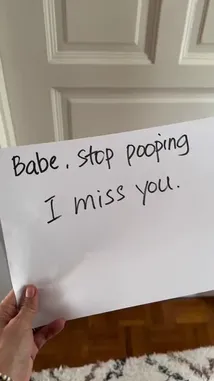 Babe, stop pooping
I miss you.